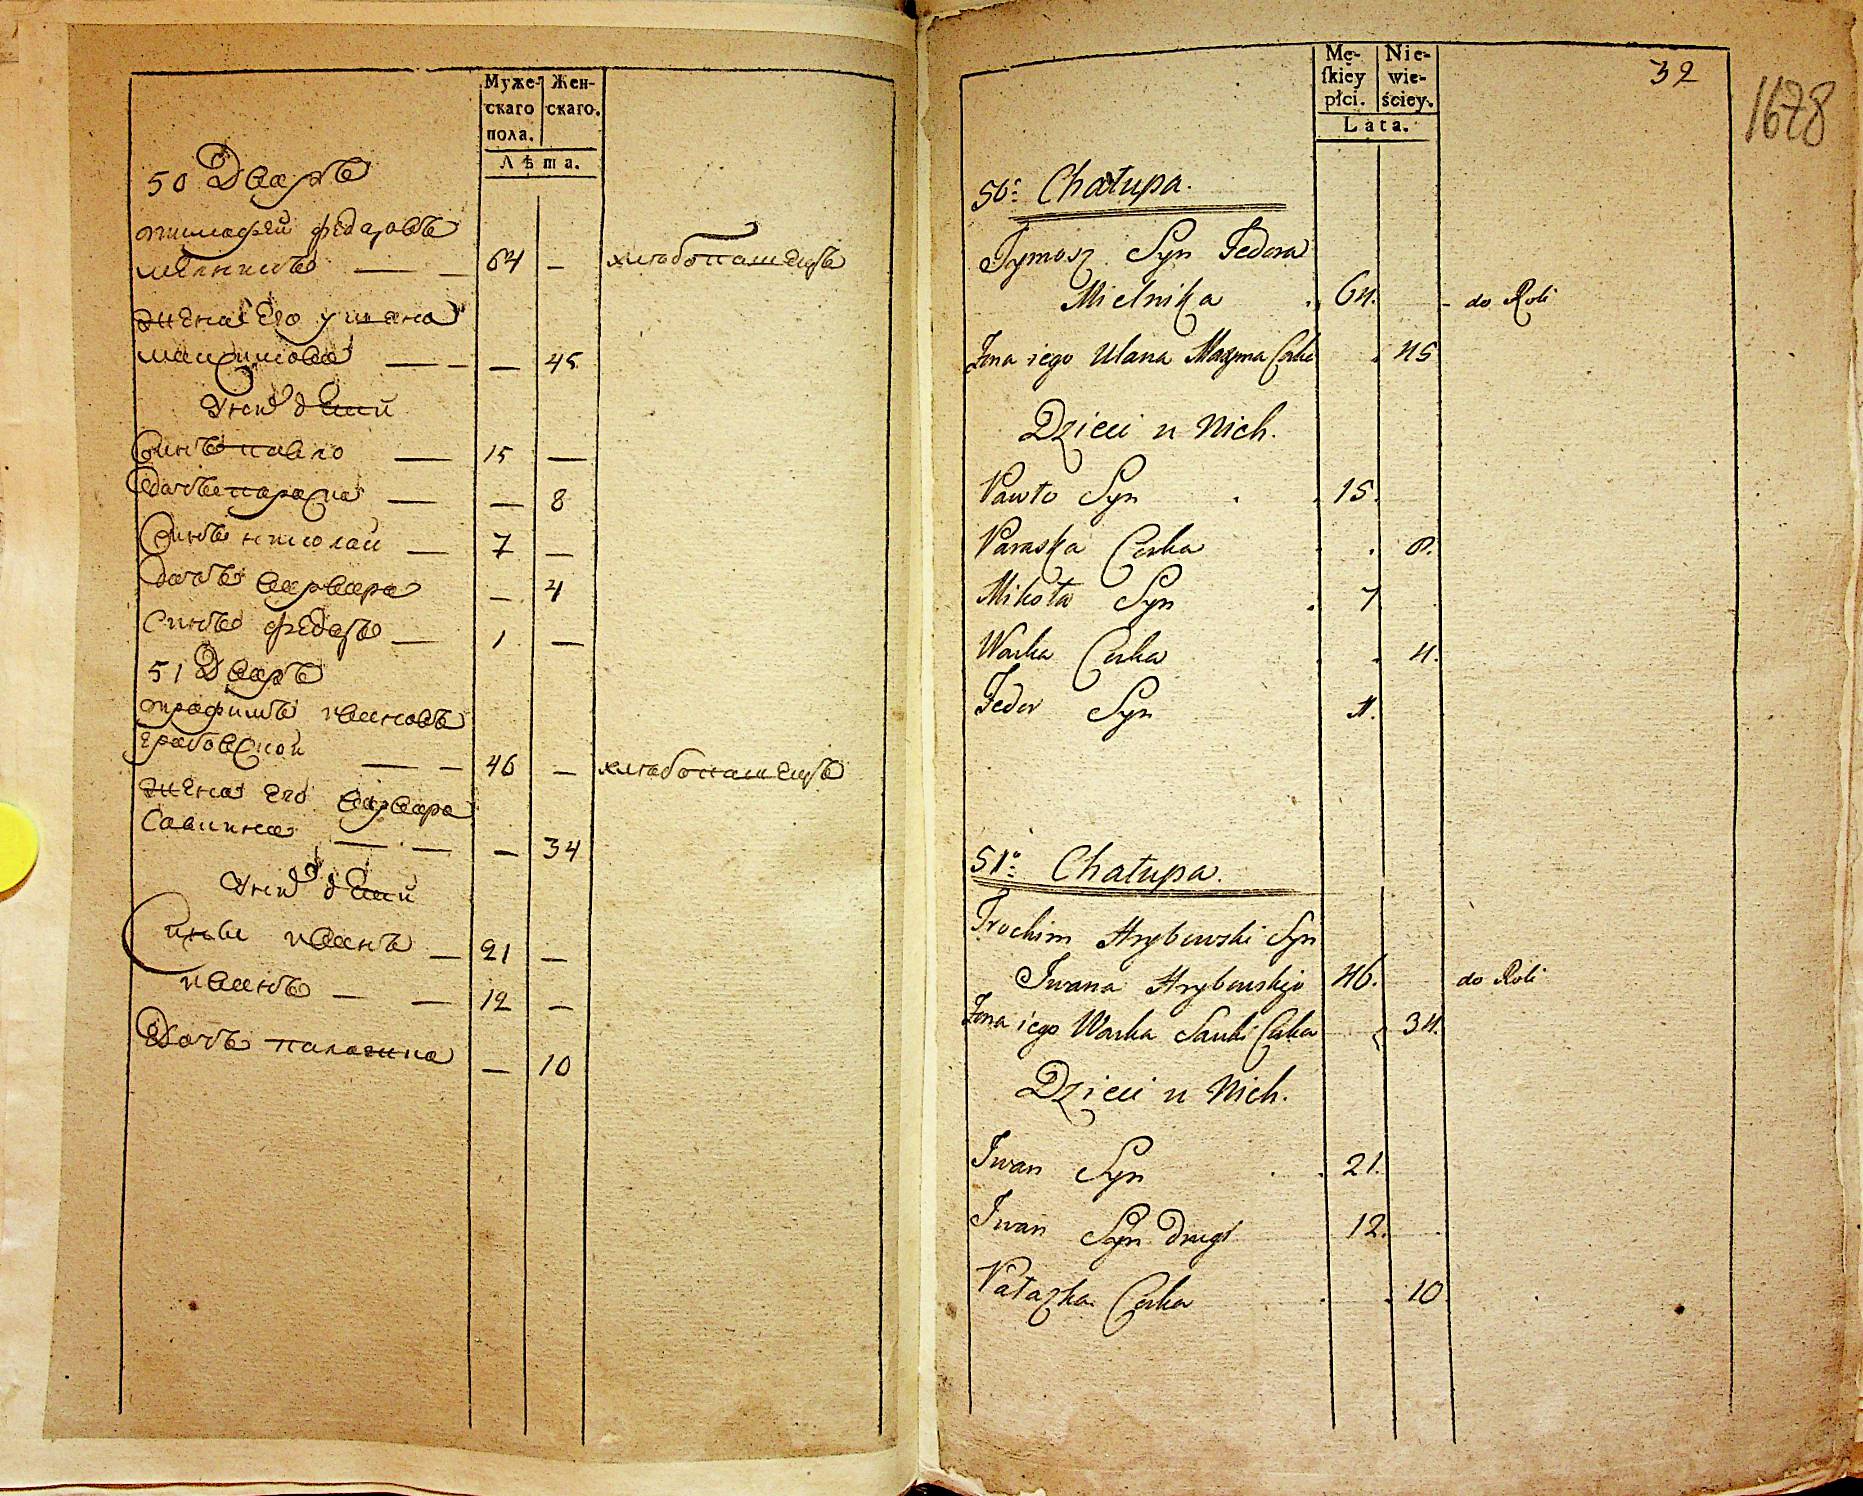 Муже- Жен-
скаго скаго.
пола.
Лѣта.
50 Дваръ
тимофей федаровъ
мелникъ — — 64 — хлѣбопашецъ
жена его уляна
максимова — — — 45
у них детей
Синъ павло — 15 —
дочь параска — — 8
Синъ николай — 7 —
дочь варвара — 4
Синъ федоръ — 1 —
51 Дваръ
трофимъ ивановъ
грабовской — — 46 — хлѣбопашецъ
жена его варвара
Савина — — — 34
у них детей
Сины иванъ — 21 —
иванъ — — 12 —
Дочь палажка — 10
Mę- Nie-
ſkiey wie-
płci. ściey.
Lata.
32
1678
50º Chałupa.
Tymosz Syn Fedora
Mielnika 64. - do Roli
Żona iego Ulana Maxyma Corka 45
Dzieci u Nich.
Pawło Syn 15.
Paraska Corka 8.
Mikoła Syn 7
Warka Corka 4.
Fedor Syn 1.
51º Chałupa.
Trochim Hrybowski Syn
Iwana Hrybowskigo 46. do Roli
Żona iego Warka Sawki Corka 34.
Dzieci u Nich.
Iwan Syn 21.
Iwan Syn drugi 12.
Pałazka Corka 10